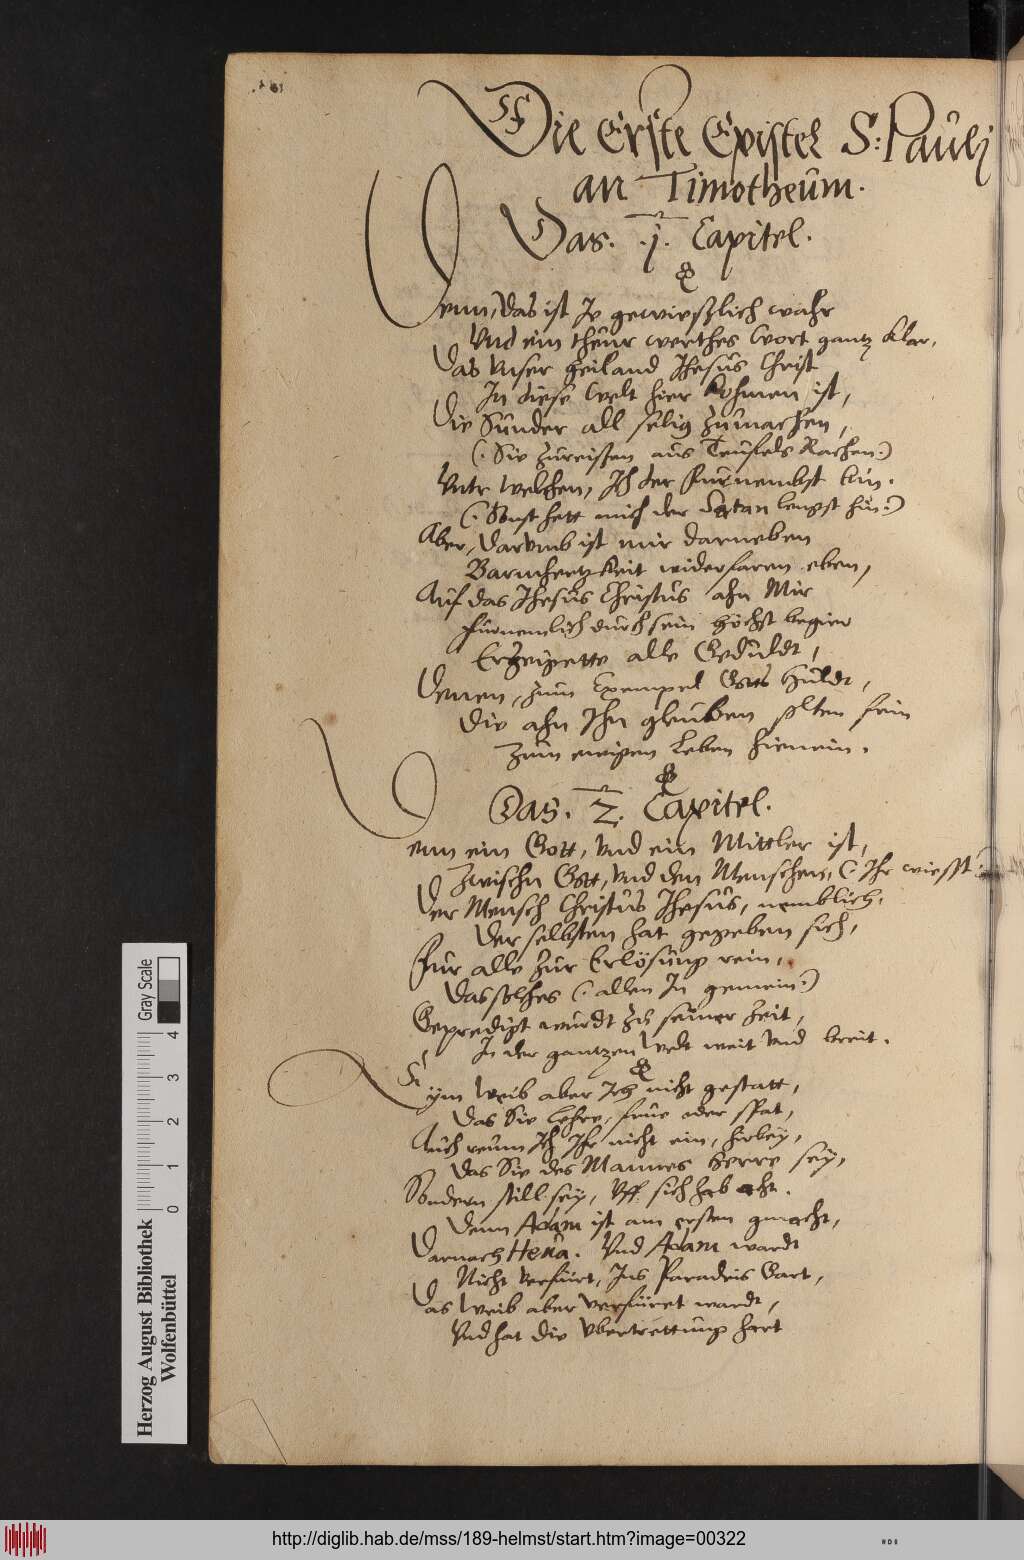 Die Erste Epistel S: Paulj
an Timotheum.
Das. 1. Capitel.
Denn, das ist Je gewießlich wahr
Vnd ein theur werthes Wort gantz klar,
Das Vnser Heiland Jhesus Christ
In diese Welt hier kohmen ist,
Die Sünder all selig zumachen,
(: Sie zureißen aus Teufels Rachen:)
Vntr Welchen, Jch der Fürnembst bin.
(: Sonst hett mich der Satan lengst hin:)
Aber, darumb ist mir darneben
Barmhertzkeit widerfaren eben,
Auf das Jhesus Christus ahn Mir
fürnemlich durch sein höchst begier
Erzeigette alle Gedüldt,
Denen, zum Exempel Gotts Huldt,
Die ahn Jhn gleuben solten fein
Zum ewigen Leben hienein.
Das. 2. Capitel.
Denn ein Gott, Vnd ein Mittler ist,
Zwischn Gott, Vnd den Menschen, (: Jhr wiesst:)
Der Mensch Christus Jhesus, nemblich,
Der selbsten hat gegeben sich,
Für alle zur Erlösung rein,
Das solches (: allen Jn gemein:)
Gepredigt würdt zu seiner Zeit,
In der gantzen Welt weit Vnd breit.
Eijm Weib aber Ich nicht gestatt,
Das Sie Lehre, frue oder spat,
Auch reum Jch Jhr nicht ein, hirbey,
Das Sie des Mannes Herre sey,
Sondern still sey, Vff sich hab acht.
Denn Adam ist am ersten gmacht,
Darnach Heua. Vnd Adam wardt
Nicht Verfürt, Jns Paradeis Gart,
Das Weib aber Verfüret wardt,
Vnd hat die Vbertrettung hart
Herzog August Bibliothek
Wolfenbüttel
0 1 2 3 4
Gray Scale
http://diglib.hab.de/mss/189-helmst/start.htm?image=00322